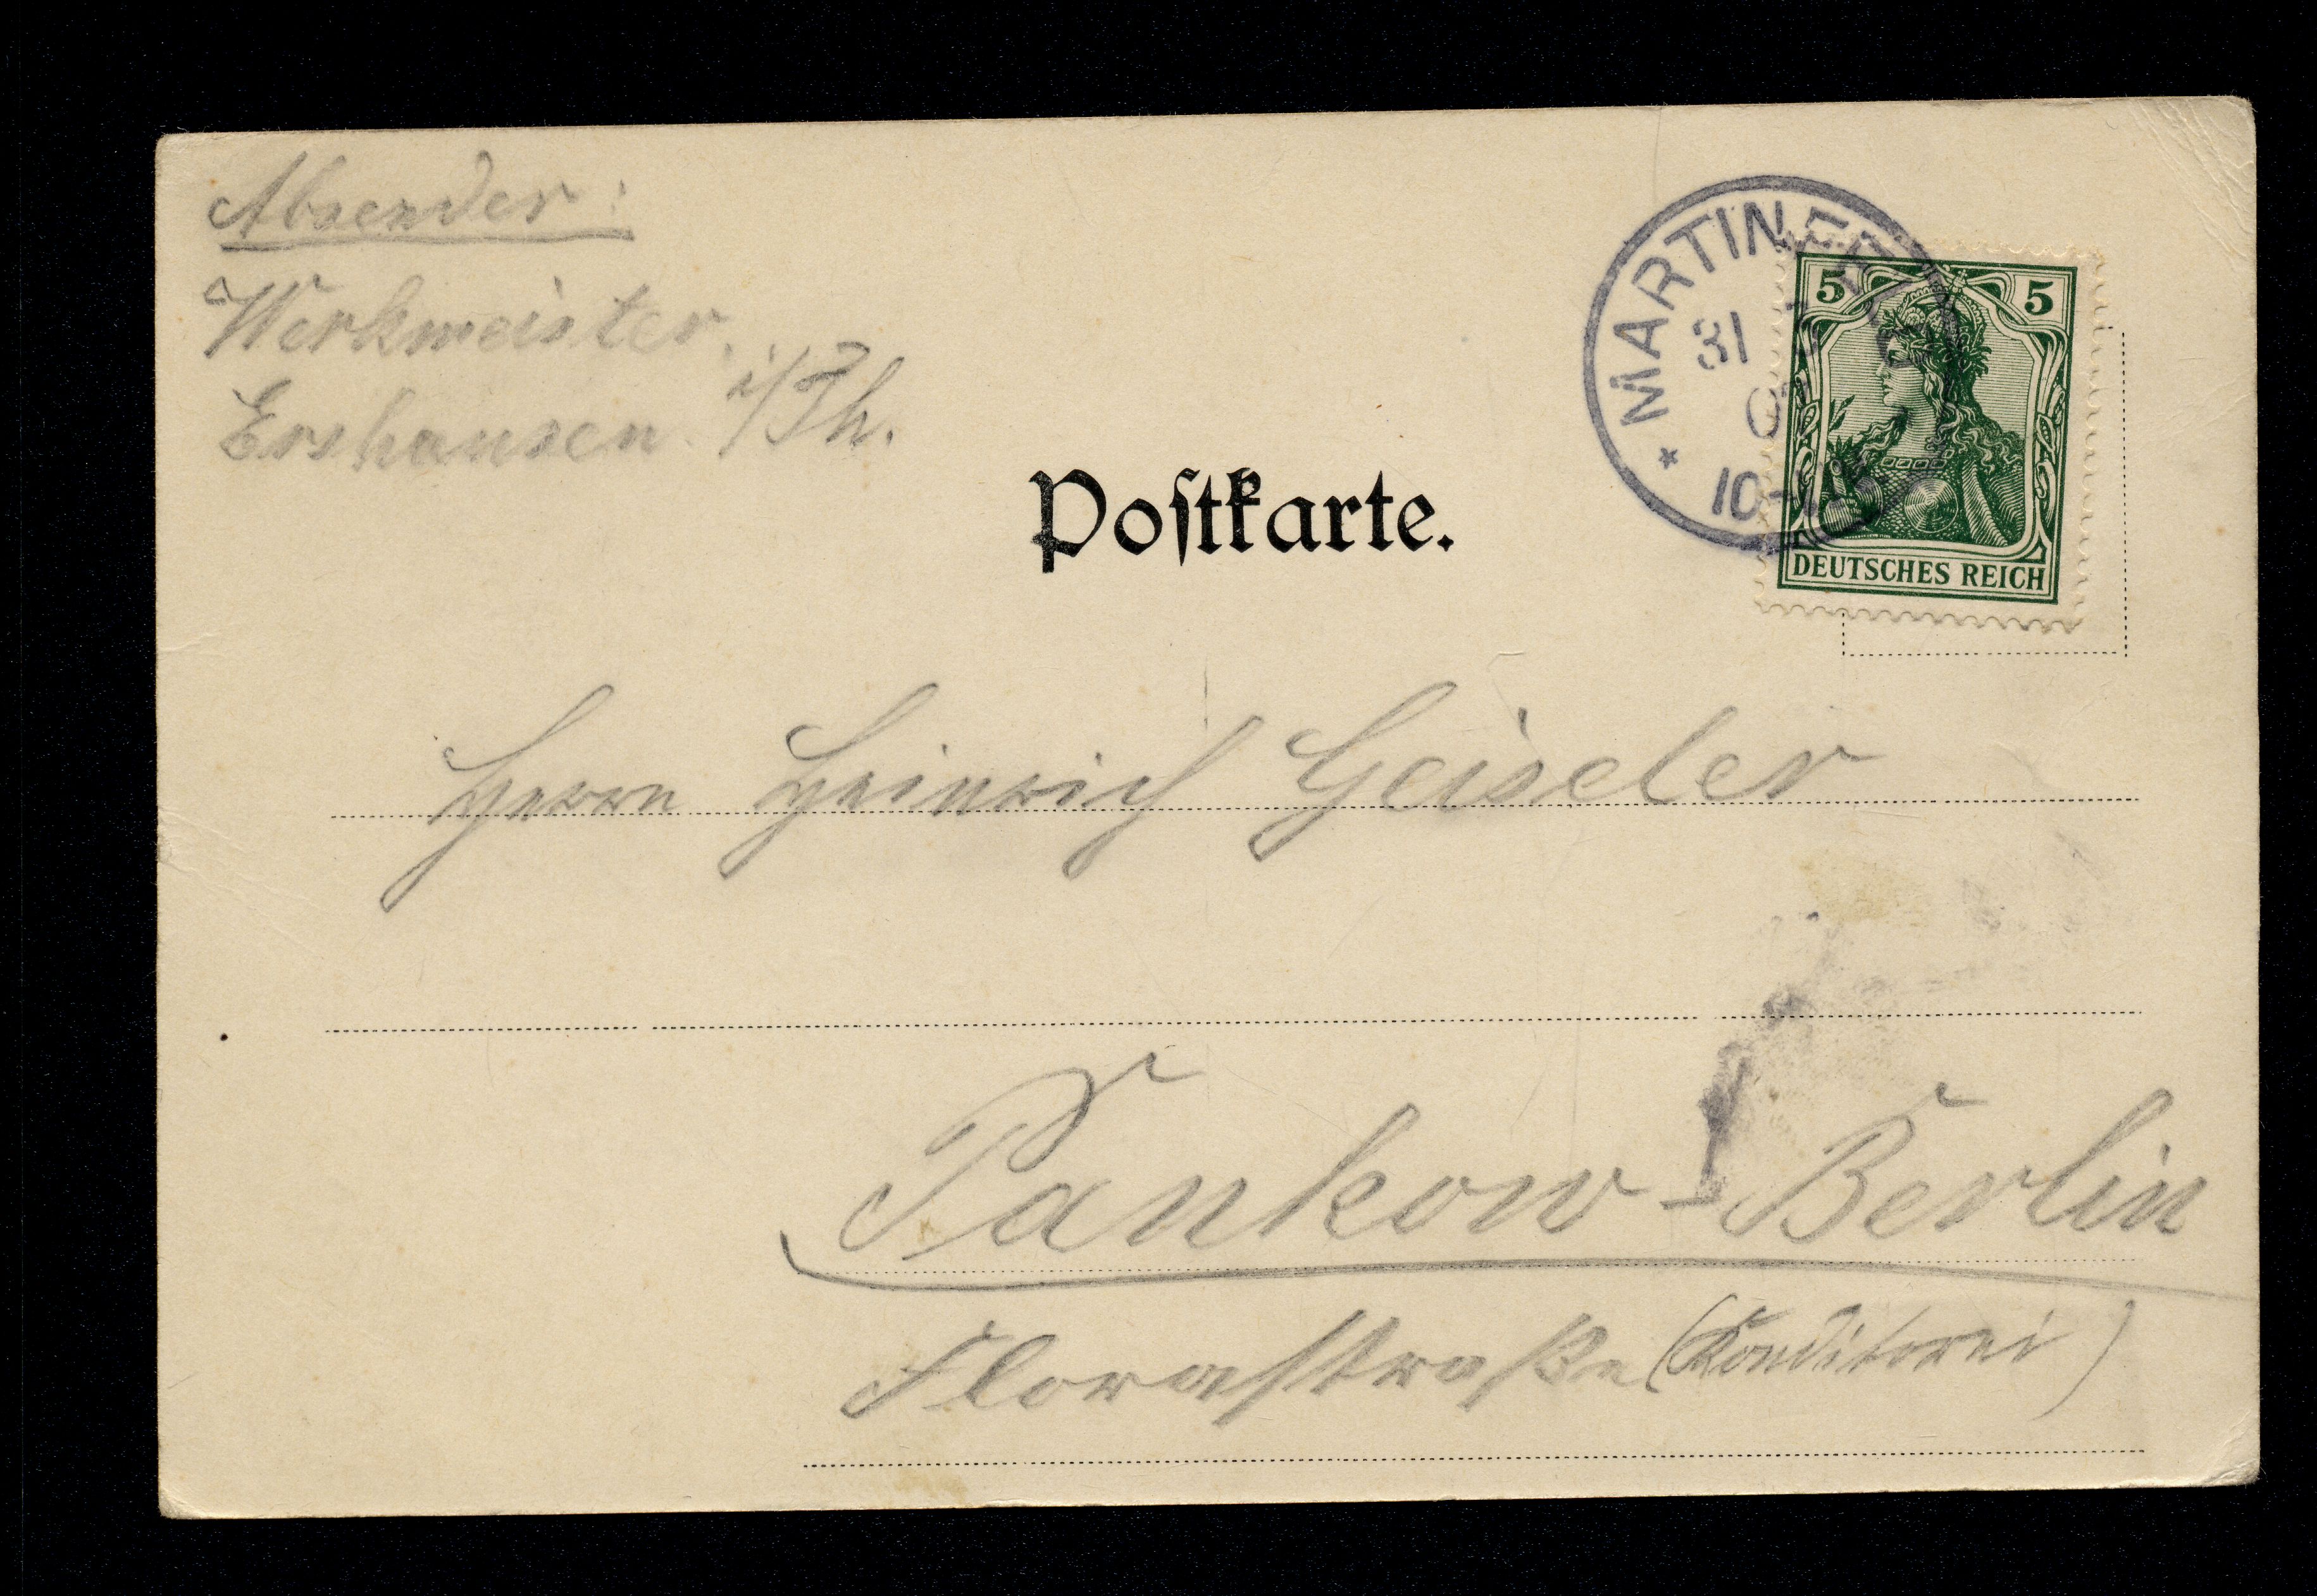 Absender:
Werkmeister,
Ershausen i/Th.
Postkarte.
* MARTINFELD
31
10-
5 5
DEUTSCHES REICH
Herrn Heinrich Geiseler
Pankow-Berlin
Florastraße (Konditorei)